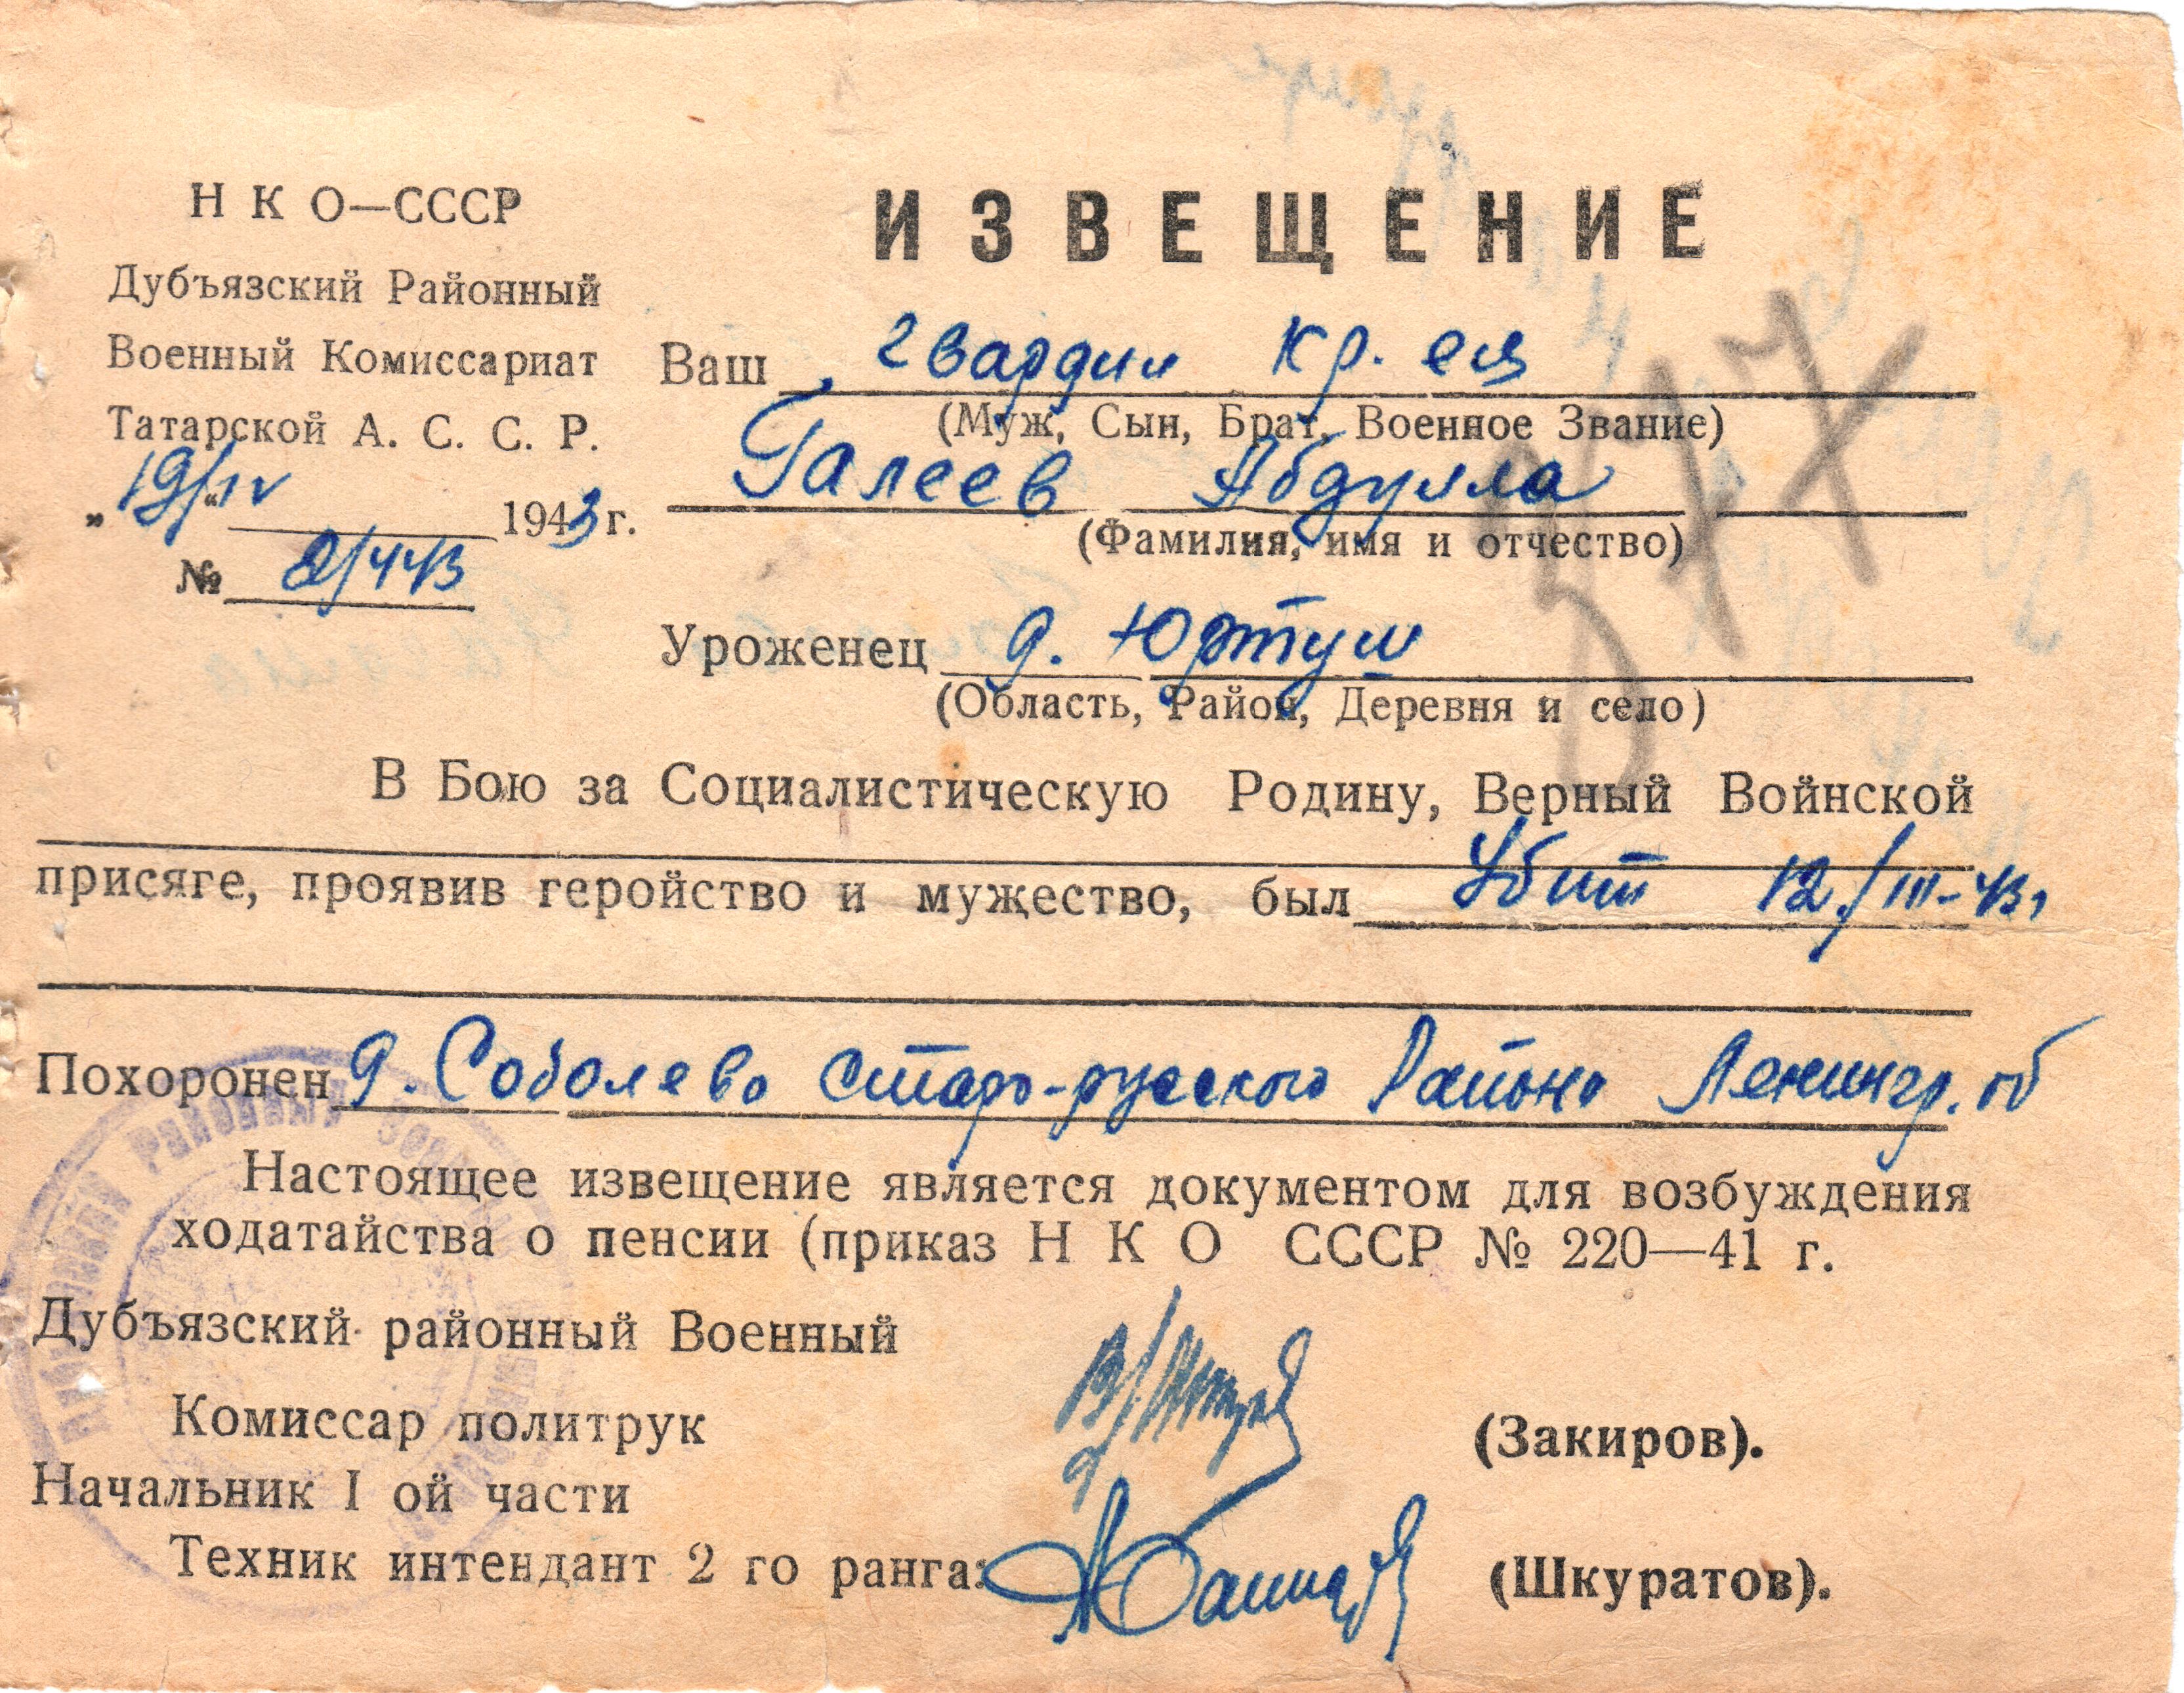 Н К О—СССР
Дубъязский Районный
Военный Комиссариат
Татарской А. С. С. Р.
„19/“ IV 1943 г.
№ 2/443
ИЗВЕЩЕНИЕ
Ваш гвардии кр. ец
(Муж, Сын, Брат, Военное Звание)
Галеев Абдулла
(Фамилия, имя и отчество)
Уроженец д. Юртуш
(Область, Район, Деревня и село)
В Бою за Социалистическую Родину, Верный Войнской
присяге, проявив геройство и мужество, был Убит 12/III-43,
Похоронен д. Соболево Старо-русского Района Ленингр. об
Настоящее извещение является документом для возбуждения
ходатайства о пенсии (приказ Н К О СССР № 220—41 г.
Дубъязский районный Военный
Комиссар политрук (Закиров).
Начальник I ой части
Техник интендант 2 го ранга: (Шкуратов).